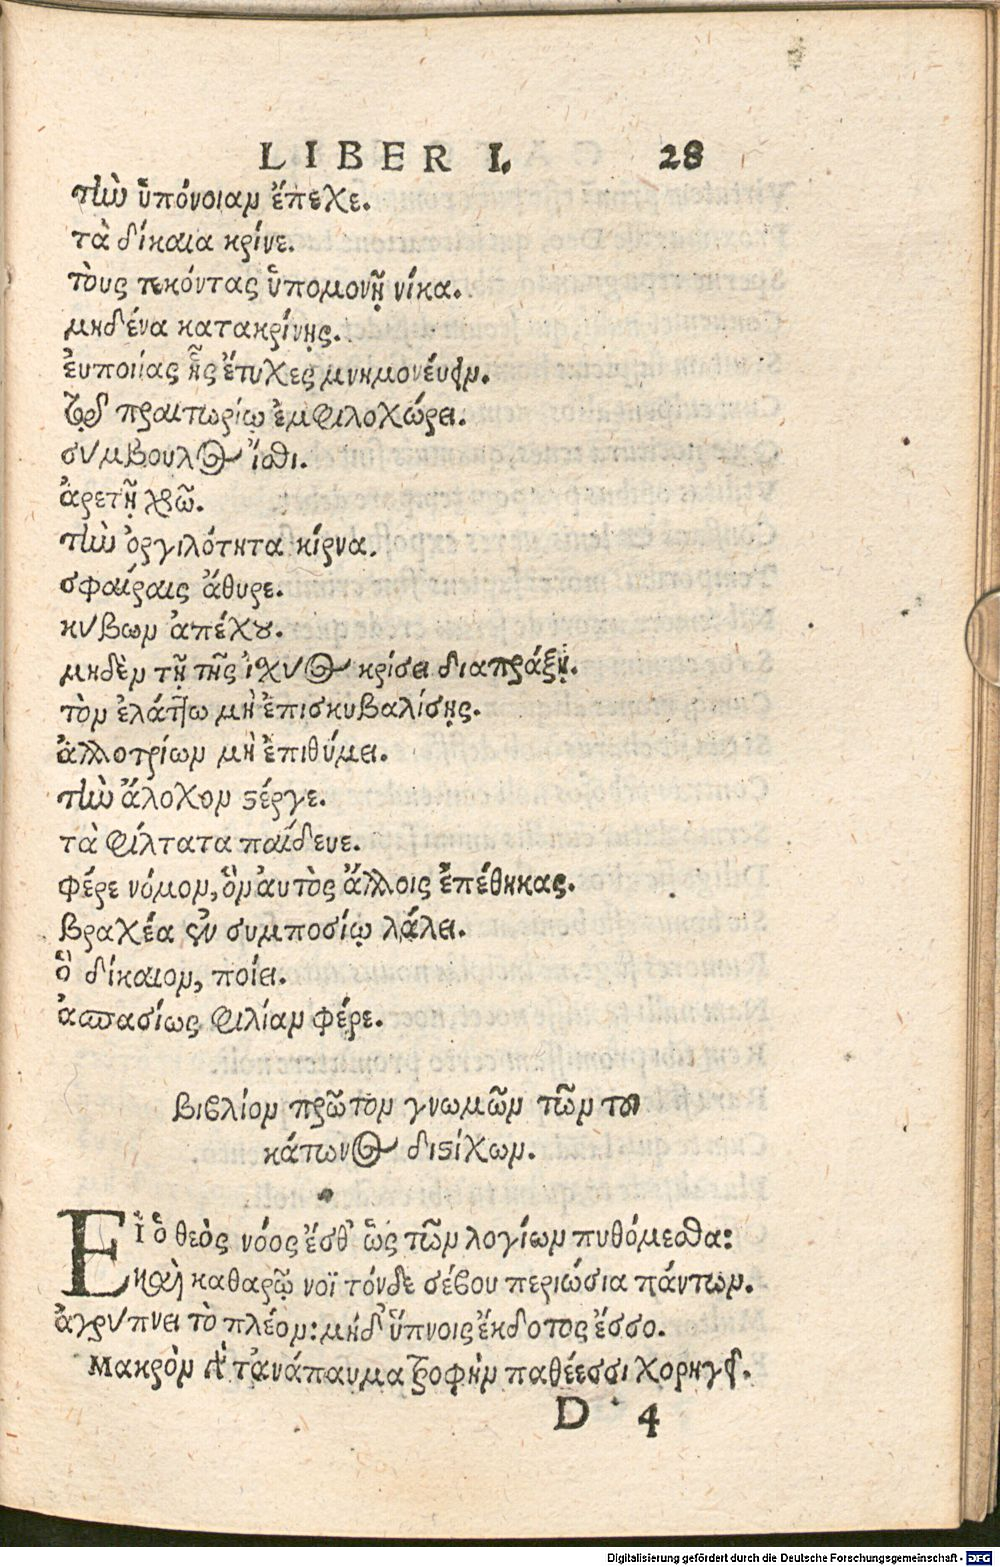 LIBER I. 28
τὴν ὑπόνοιαν ἔπεχε.
τὰ δίκαια κρίνε.
τοὺς τεκόντας ὑπομονῇ νίκα.
μηδένα κατακρίνῃς.
ἐυποιίας ἧς ἔτυχες μνημονέυειν.
τῷ πραιτωρίῳ ἐμφιλοχώρει.
σύμβουλος ἴσθι.
ἀρετῇ χρῶ.
τὴν ὀργιλότητα κίρνα.
σφαίραις ἄθυρε.
κύβων ἀπέχου.
μηδὲν τῇ τῆς ἰχύος κρίσει διαπράξῃ.
τὸν ἐλάττω μὴ ἐπισκυβαλίσῃς.
ἀλλοτρίων μὴ ἐπιθύμει.
τὴν ἄλοχον στέργε.
τὰ φίλτατα παίδευε.
φέρε νόμον, ὃν ἀυτὸς ἄλλοις ἐπέθηκας.
βραχέα ἐν συμποσίῳ λάλει.
ὃ δίκαιον, ποίει.
ἀσπασίως φιλίαν φέρε.
βιβλίον πρῶτον γνωμῶν τῶν τοῦ
κάτωνος διστίχων.
Εἰ ὁ θεὸς νόος ἔσθ' ὣς τῶν λογίων πυθόμεσθα:
Εν καὶ καθαρῷ νοῒ τόνδε σέβου περιώσια πάντων.
ἀγρύπνει τὸ πλέον: μήδ' ὕπνοις ἔκδοτος ἔσσο.
Μακρὸν δὲ τ' ἀνάπαυμα τροφὴν παθέεσσι χορηγεῖ.
D 4
Digitalisierung gefördert durch die Deutsche Forschungsgemeinschaft - DFG